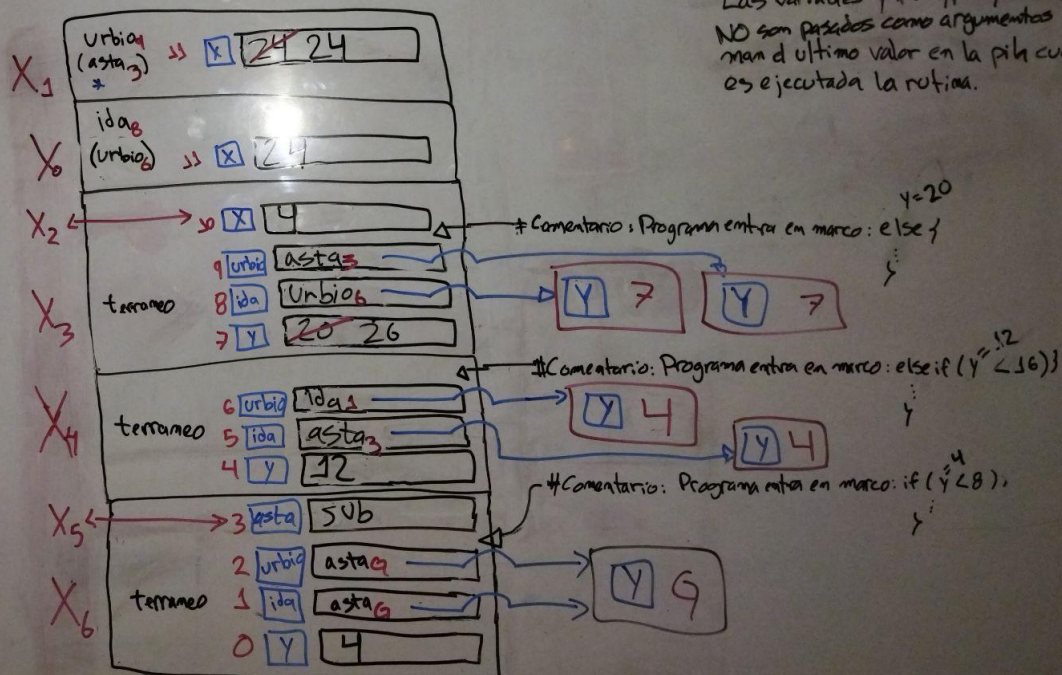 NO son pasados como argumentos
man d ultimo valor en la pila
es ejecutada la rutina.
X1
urbio9
(asta3)
*
JJ X 24 24
X
ida8
(urbio6)
JJ X 24
X2
X 4
#Comentario: Programa entra en marco: else {
y=20
}
X3
terraneo
9 urbio asta3
8 ida urbio6
7 Y 20 26
Y 7
Y 7
#Comentario: Programa entra en marco: else if (y < 16) }
=12
}
X4
terraneo
6 urbio Ida1
5 ida asta3
4 Y 12
Y 4
Y 4
#Comentario: Programa entra en marco: if (y < 8),
=4
}
X5
3 asta sub
X6
terraneo
2 urbio astaG
1 ida astaG
0 Y 4
Y G